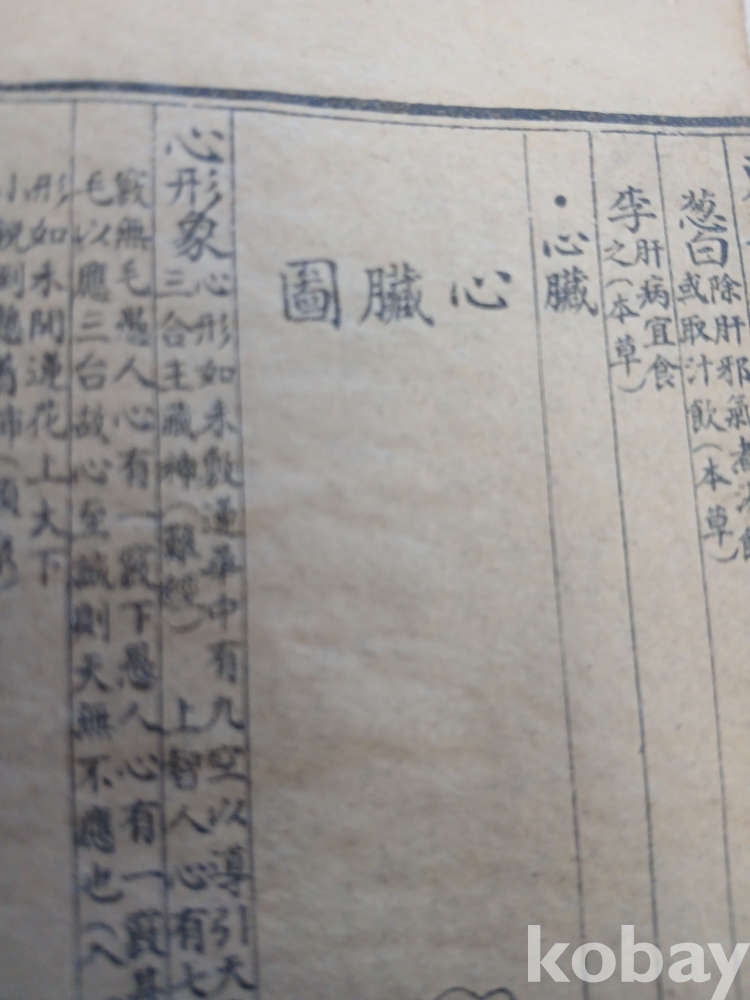 葱白 除肝邪氣煮湯
或取汁飲(本草)
李 肝病宜食
之(本草)
•心臟
心臟圖
心形象 心形如未敷蓮華中有九空以導引天
三合主藏神(難經) 上智人心有七
竅無毛愚人心有一竅下愚人心有一竅甚
毛以應三台故心至誠則天無不應也(入
形如未開蓮花上大下
kobay